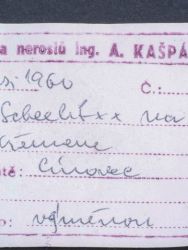 a nerostů Ing. A. KAŠPÁ
1960 Č.:
Scheelit xx na
křemene
tě: Cínovec
o: výměnou